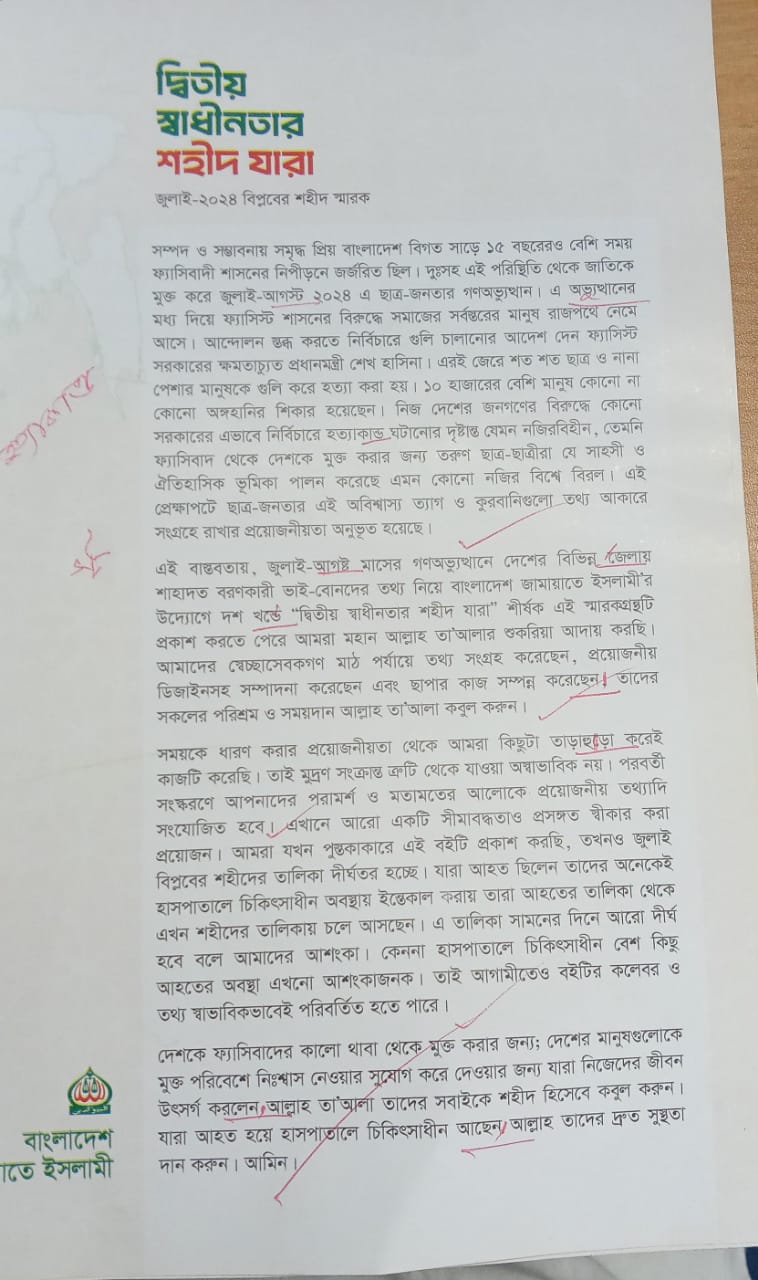 দ্বিতীয়
স্বাধীনতার
শহীদ যারা
জুলাই-২০২৪ বিপ্লবের শহীদ স্মারক
সম্পদ ও সম্ভাবনায় সমৃদ্ধ প্রিয় বাংলাদেশ বিগত সাড়ে ১৫ বছরেরও বেশি সময়
ফ্যাসিবাদী শাসনের নিপীড়নে জর্জরিত ছিল। দুঃসহ এই পরিস্থিতি থেকে জাতিকে
মুক্ত করে জুলাই-আগস্ট ২০২৪ এ ছাত্র-জনতার গণঅভ্যুত্থান। এ অভ্যুত্থানের
মধ্য দিয়ে ফ্যাসিস্ট শাসনের বিরুদ্ধে সমাজের সর্বস্তরের মানুষ রাজপথে নেমে
আসে। আন্দোলন স্তব্ধ করতে নির্বিচারে গুলি চালানোর আদেশ দেন ফ্যাসিস্ট
সরকারের ক্ষমতাচ্যুত প্রধানমন্ত্রী শেখ হাসিনা। এরই জেরে শত শত ছাত্র ও নানা
পেশার মানুষকে গুলি করে হত্যা করা হয়। ১০ হাজারের বেশি মানুষ কোনো না
কোনো অঙ্গহানির শিকার হয়েছেন। নিজ দেশের জনগণের বিরুদ্ধে কোনো
সরকারের এভাবে নির্বিচারে হত্যাকান্ড ঘটানোর দৃষ্টান্ত যেমন নজিরবিহীন, তেমনি
ফ্যাসিবাদ থেকে দেশকে মুক্ত করার জন্য তরুণ ছাত্র-ছাত্রীরা যে সাহসী ও
ঐতিহাসিক ভূমিকা পালন করেছে এমন কোনো নজির বিশ্বে বিরল। এই
প্রেক্ষাপটে ছাত্র-জনতার এই অবিশ্বাস্য ত্যাগ ও কুরবানিগুলো তথ্য আকারে
সংগ্রহে রাখার প্রয়োজনীয়তা অনুভূত হয়েছে।
এই বাস্তবতায়, জুলাই-আগষ্ট মাসের গণঅভ্যুত্থানে দেশের বিভিন্ন জেলায়
শাহাদত বরণকারী ভাই-বোনদের তথ্য নিয়ে বাংলাদেশ জামায়াতে ইসলামী'র
উদ্যোগে দশ খন্ডে “দ্বিতীয় স্বাধীনতার শহীদ যারা” শীর্ষক এই স্মারকগ্রন্থটি
প্রকাশ করতে পেরে আমরা মহান আল্লাহ তা'আলার শুকরিয়া আদায় করছি।
আমাদের স্বেচ্ছাসেবকগণ মাঠ পর্যায়ে তথ্য সংগ্রহ করেছেন, প্রয়োজনীয়
ডিজাইনসহ সম্পাদনা করেছেন এবং ছাপার কাজ সম্পন্ন করেছেন। তাদের
সকলের পরিশ্রম ও সময়দান আল্লাহ তা'আলা কবুল করুন।
সময়কে ধারণ করার প্রয়োজনীয়তা থেকে আমরা কিছুটা তাড়াহুড়ো করেই
কাজটি করেছি। তাই মুদ্রণ সংক্রান্ত ত্রুটি থেকে যাওয়া অস্বাভাবিক নয়। পরবর্তী
সংস্করণে আপনাদের পরামর্শ ও মতামতের আলোকে প্রয়োজনীয় তথ্যাদি
সংযোজিত হবে। এখানে আরো একটি সীমাবদ্ধতাও প্রসঙ্গত স্বীকার করা
প্রয়োজন। আমরা যখন পুস্তকাকারে এই বইটি প্রকাশ করছি, তখনও জুলাই
বিপ্লবের শহীদের তালিকা দীর্ঘতর হচ্ছে। যারা আহত ছিলেন তাদের অনেকেই
হাসপাতালে চিকিৎসাধীন অবস্থায় ইন্তেকাল করায় তারা আহতের তালিকা থেকে
এখন শহীদের তালিকায় চলে আসছেন। এ তালিকা সামনের দিনে আরো দীর্ঘ
হবে বলে আমাদের আশংকা। কেননা হাসপাতালে চিকিৎসাধীন বেশ কিছু
আহতের অবস্থা এখনো আশংকাজনক। তাই আগামীতেও বইটির কলেবর ও
তথ্য স্বাভাবিকভাবেই পরিবর্তিত হতে পারে।
দেশকে ফ্যাসিবাদের কালো থাবা থেকে মুক্ত করার জন্য; দেশের মানুষগুলোকে
মুক্ত পরিবেশে নিঃশ্বাস নেওয়ার সুযোগ করে দেওয়ার জন্য যারা নিজেদের জীবন
উৎসর্গ করলেন, আল্লাহ তা'আলা তাদের সবাইকে শহীদ হিসেবে কবুল করুন।
যারা আহত হয়ে হাসপাতালে চিকিৎসাধীন আছেন, আল্লাহ তাদের দ্রুত সুস্থতা
দান করুন। আমিন।
বাংলাদেশ
াতে ইসলামী